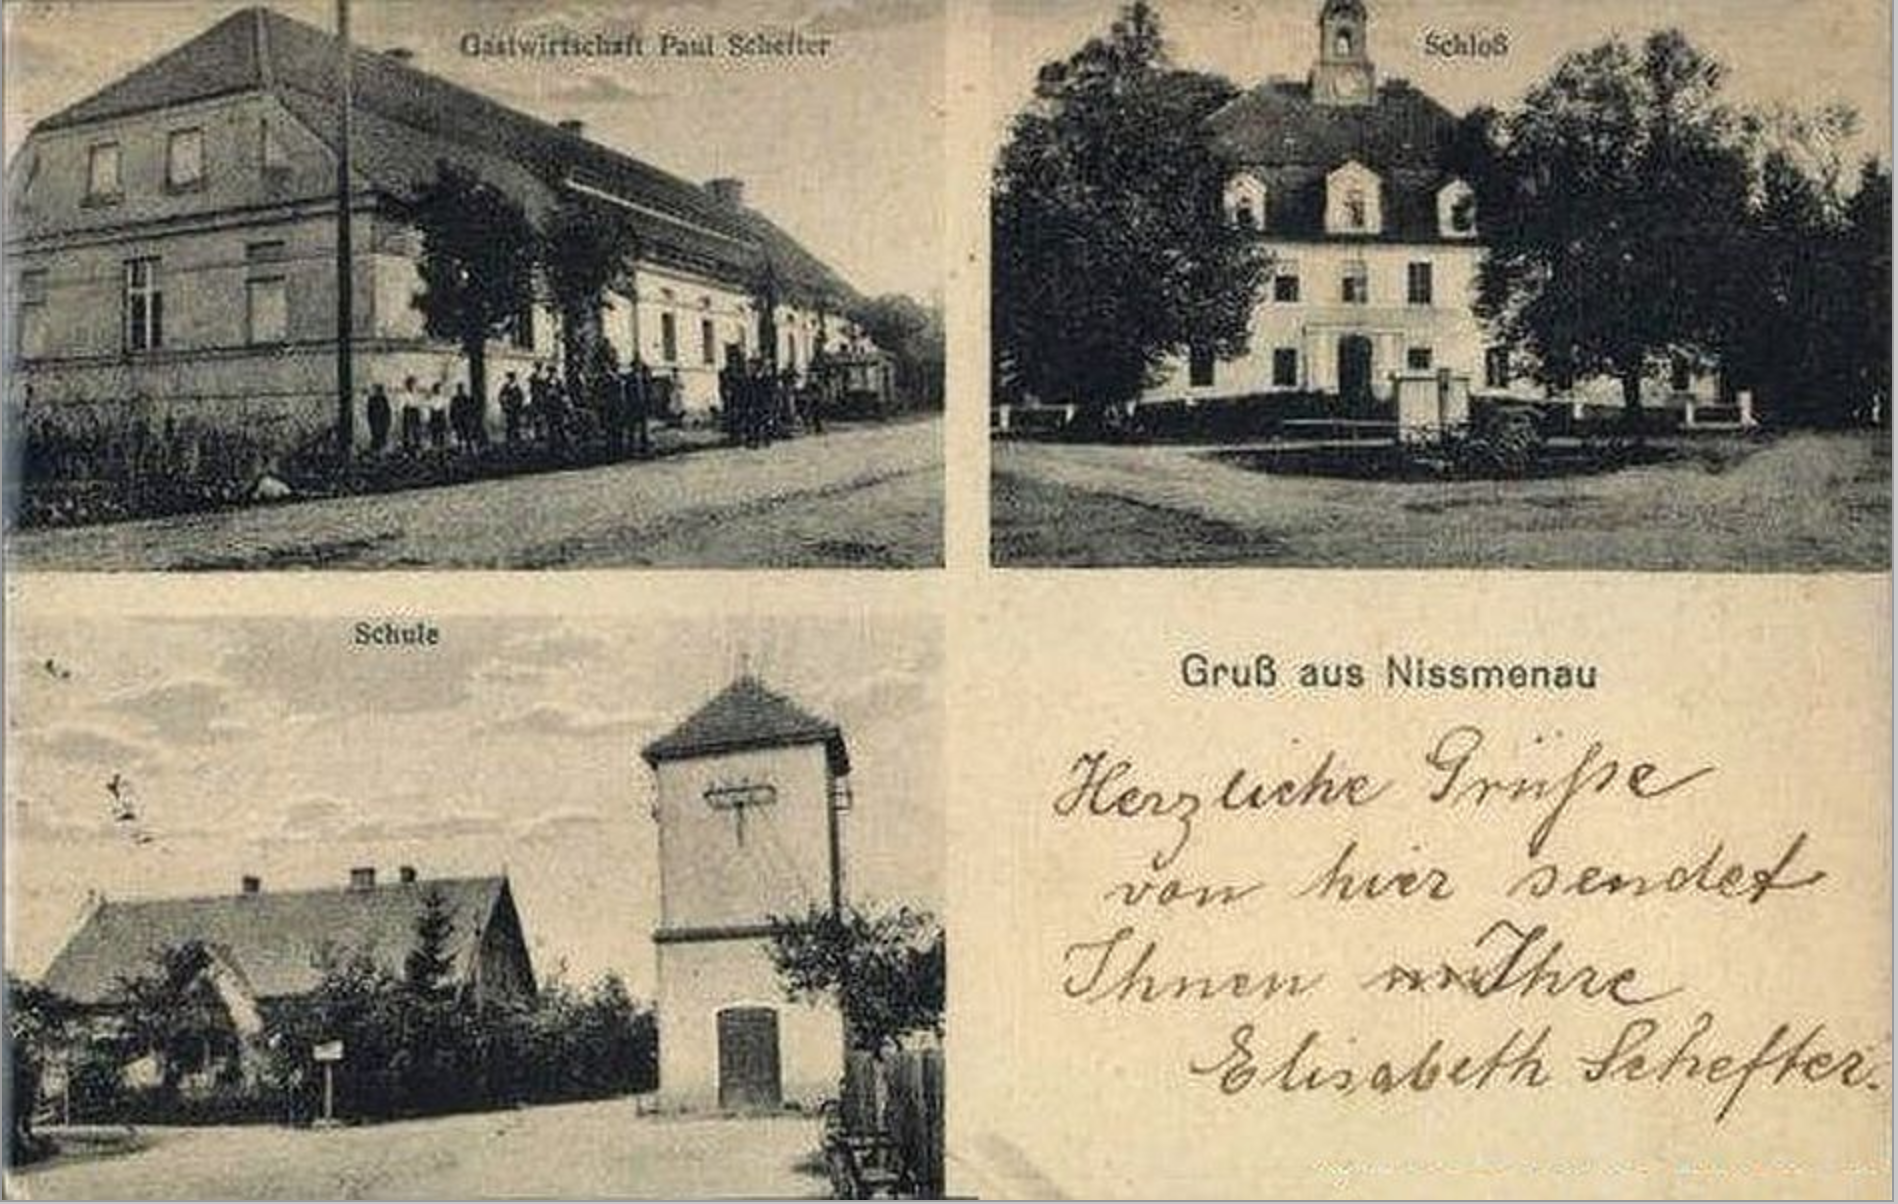 Gastwirtschaft Paul Schefter
Schloß
Schule
Gruß aus Nissmenau
Herzliche Grüße
von hier sendet
Ihnen Ihre
Elisabeth Schefter.